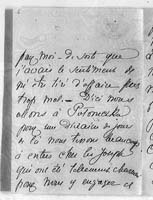 par moi - de sorte que
j'avais le sentiment de
m'être tiré d'affaire pas
trop mal. - D'ici nous
allons à
pour une dizaine de jours
et là nous tenons beaucoup
à entrer chez les Joseph
qui ont été tellement chers
pour nous y engager et